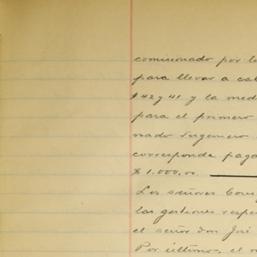 comisionado por la
para llevar a cab
$42 y 41 y la med
para el primero
nado Ingeniero
corresponde paga
$1.000,00
Los señores Conc
las gestiones respe
el señor don José
Por último, el